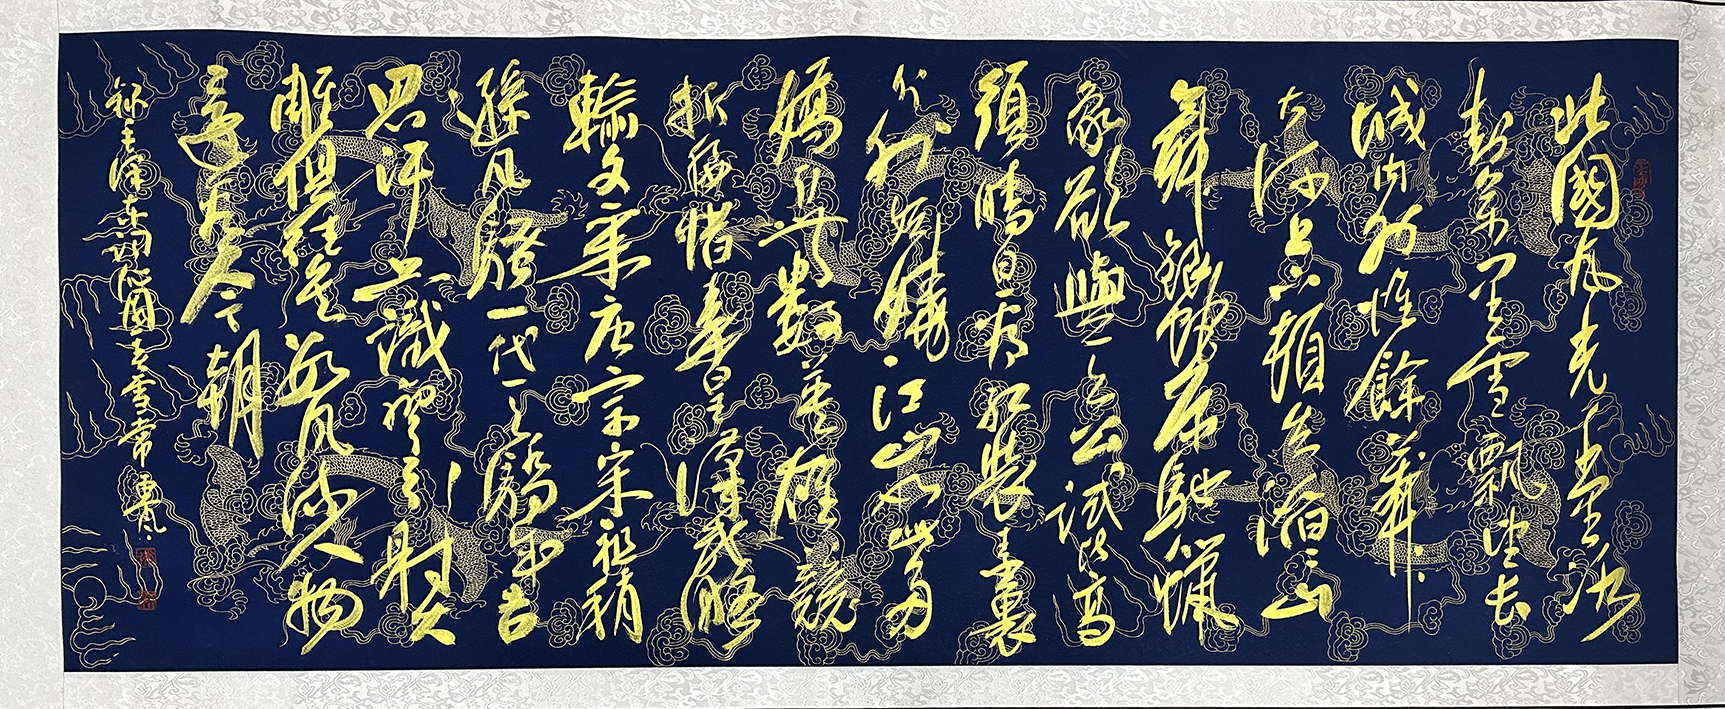 北國風光千里冰
封萬里雪飄望長
城內外惟餘莽莽
大河上下頓失滔滔山
舞銀蛇原馳蠟
象欲與天公試比高
須晴日看紅裝素裹
分外妖嬈江山如此多
嬌引無數英雄競
折腰惜秦皇漢武略
輸文采唐宗宋祖稍
遜風騷一代天驕成吉
思汗只識彎弓射大
雕俱往矣數風流人物
還看今朝
録毛澤東詞沁園春雪常